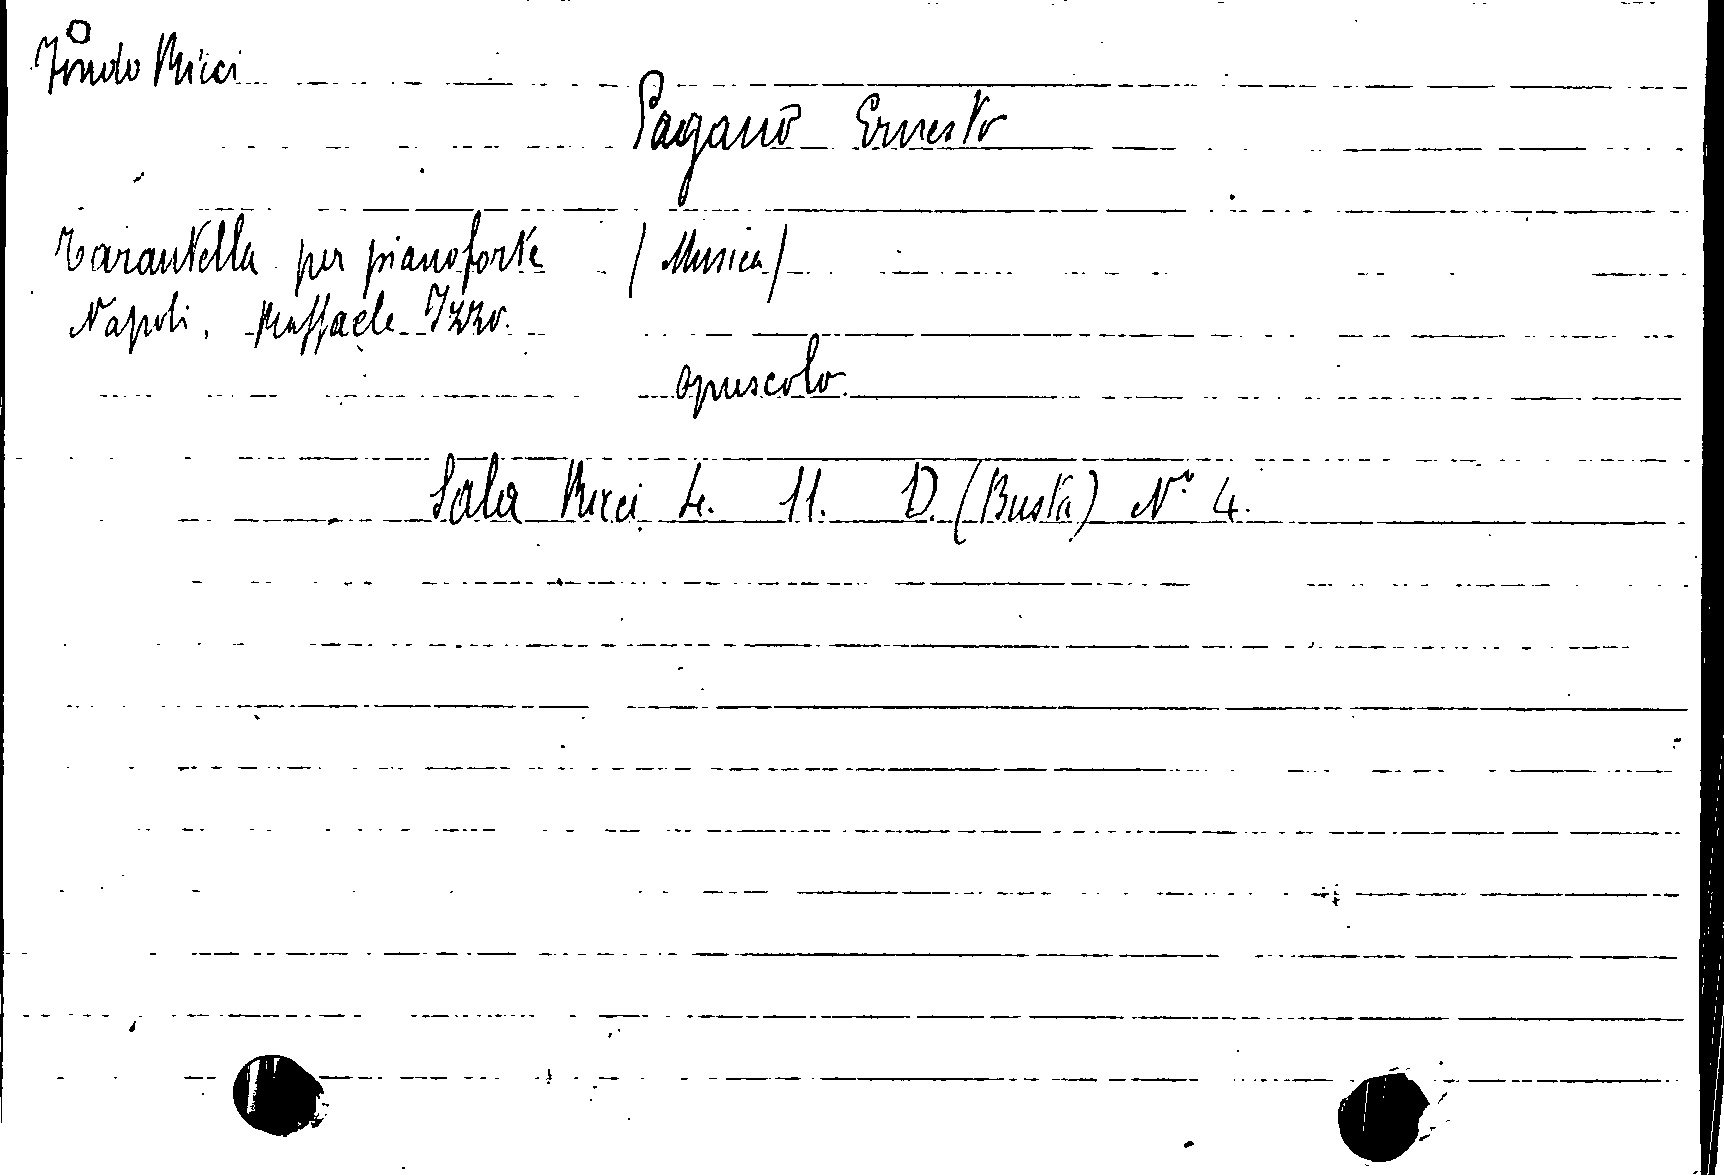 Fondo Ricci
Pagano Ernesto
Tarantella per pianoforte (Musica)
Napoli, Raffaele Izzo.
opuscolo.
Sala Ricci L. 11. D. (Busta) N° 4.